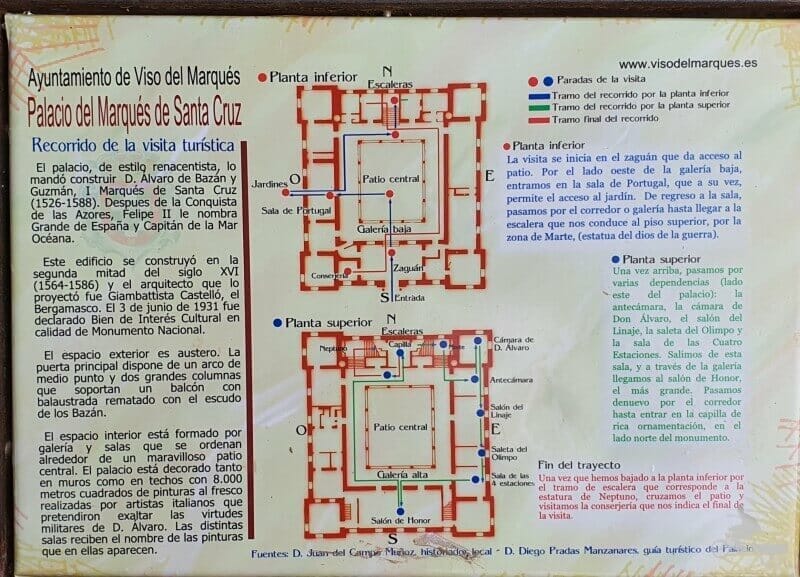 Ayuntamiento de Viso del Marqués
Palacio del Marqués de Santa Cruz
Recorrido de la visita turística
El palacio, de estilo renacentista, lo
mandó construir D. Álvaro de Bazán y
Guzmán, I Marqués de Santa Cruz
(1526-1588). Despues de la Conquista
de las Azores, Felipe II le nombra
Grande de España y Capitán de la Mar
Océana.
Este edificio se construyó en la
segunda mitad del siglo XVI
(1564-1586) y el arquitecto que lo
proyectó fue Giambattista Castelló, el
Bergamasco. El 3 de junio de 1931 fue
declarado Bien de Interés Cultural en
calidad de Monumento Nacional.
El espacio exterior es austero. La
puerta principal dispone de un arco de
medio punto y dos grandes columnas
que soportan un balcón con
balaustrada rematado con el escudo
de los Bazán.
El espacio interior está formado por
galería y salas que se ordenan
alrededor de un maravilloso patio
central. El palacio está decorado tanto
en muros como en techos con 8.000
metros cuadrados de pinturas al fresco
realizadas por artistas italianos que
pretendiron exaltar las virtudes
militares de D. Álvaro. Las distintas
salas reciben el nombre de las pinturas
que en ellas aparecen.
Planta inferior
N
Escaleras
Patio central
O
E
Jardines
Sala de Portugal
Galería baja
Zaguán
Conserjería
S
Entrada
Planta superior
N
Escaleras
Neptuno
Capilla
Marte
Cámara de
D. Álvaro
Antecámara
Salón del
Linaje
O
Patio central
E
Saleta del
Olimpo
Galería alta
Sala de las
4 estaciones
Salón de Honor
S
www.visodelmarques.es
Paradas de la visita
Tramo del recorrido por la planta inferior
Tramo del recorrido por la planta superior
Tramo final del recorrido
Planta inferior
La visita se inicia en el zaguán que da acceso al
patio. Por el lado oeste de la galería baja,
entramos en la sala de Portugal, que a su vez,
permite el acceso al jardín. De regreso a la sala,
pasamos por el corredor o galería hasta llegar a la
escalera que nos conduce al piso superior, por la
zona de Marte, (estatua del dios de la guerra).
Planta superior
Una vez arriba, pasamos por
varias dependencias (lado
este del palacio): la
antecámara, la cámara de
Don Álvaro, el salón del
Linaje, la saleta del Olimpo y
la sala de las Cuatro
Estaciones. Salimos de esta
sala, y a través de la galería
llegamos al salón de Honor,
el más grande. Pasamos
denuevo por el corredor
hasta entrar en la capilla de
rica ornamentación, en el
lado norte del monumento.
Fin del trayecto
Una vez que hemos bajado a la planta inferior por
el tramo de escalera que corresponde a la
estatura de Neptuno, cruzamos el patio y
visitamos la conserjería que nos indica el final de
la visita.
Fuentes: D. Juan del Campo Muñoz, historiador local - D. Diego Pradas Manzanares, guía turístico del